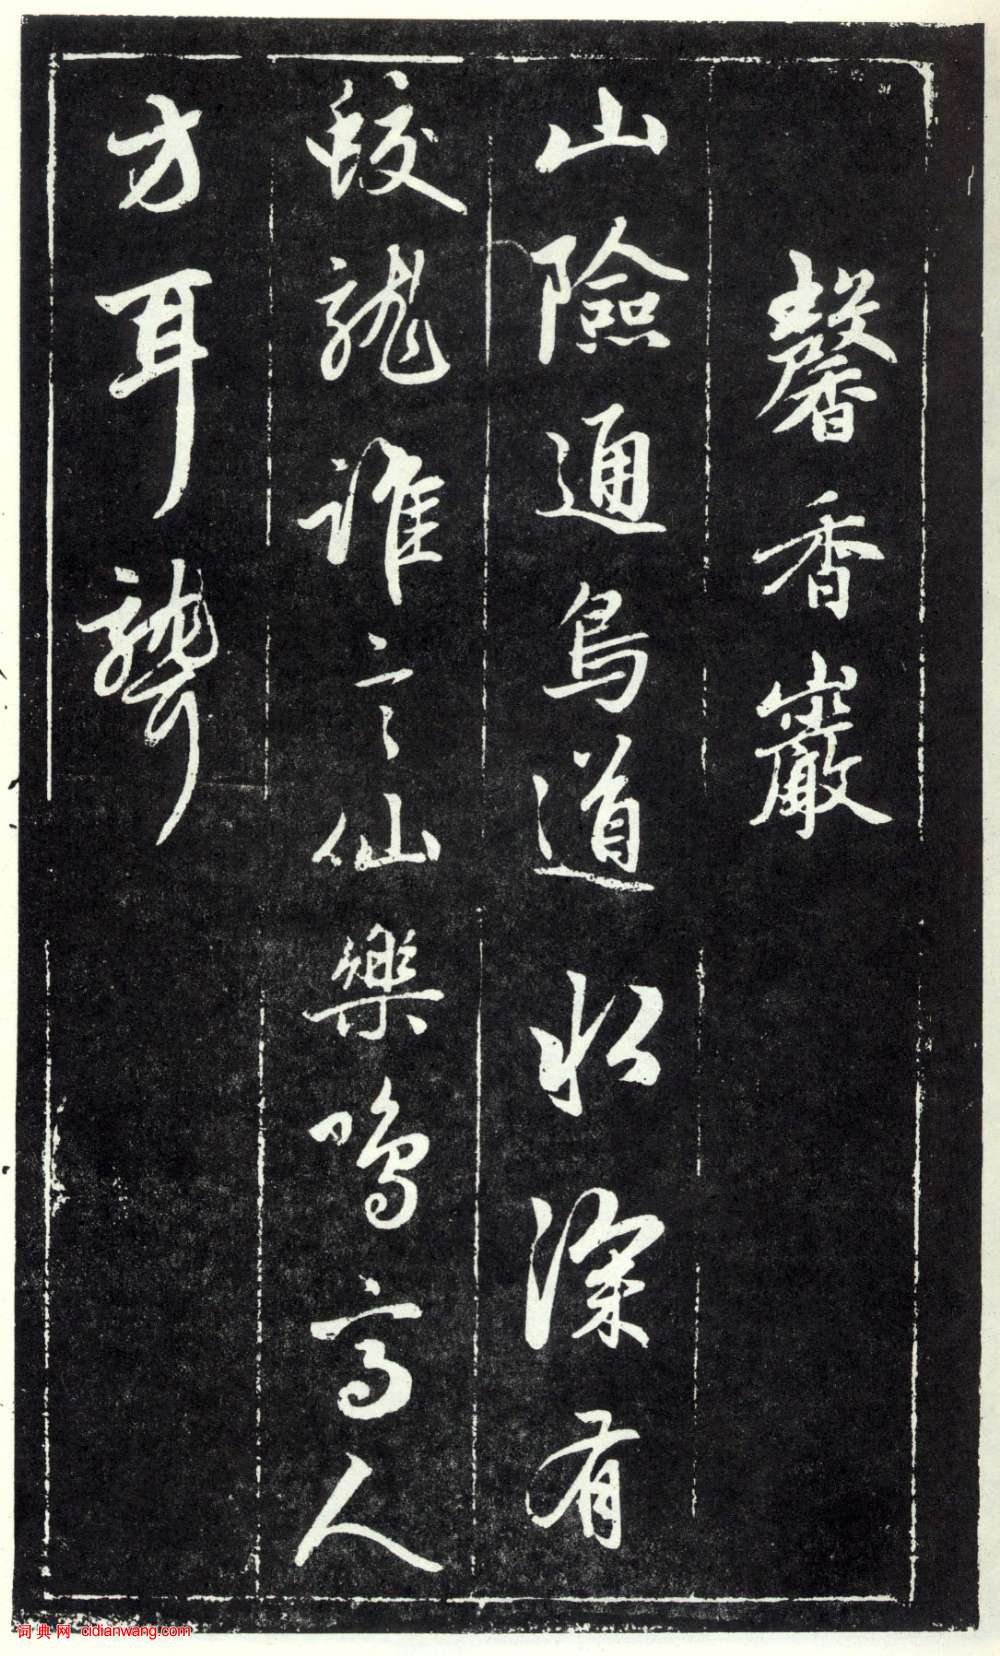 馨香巖
山險通鳥道水深有
蛟龍誰言仙樂鳴高人
方耳聾
词典网 cidianwang.com